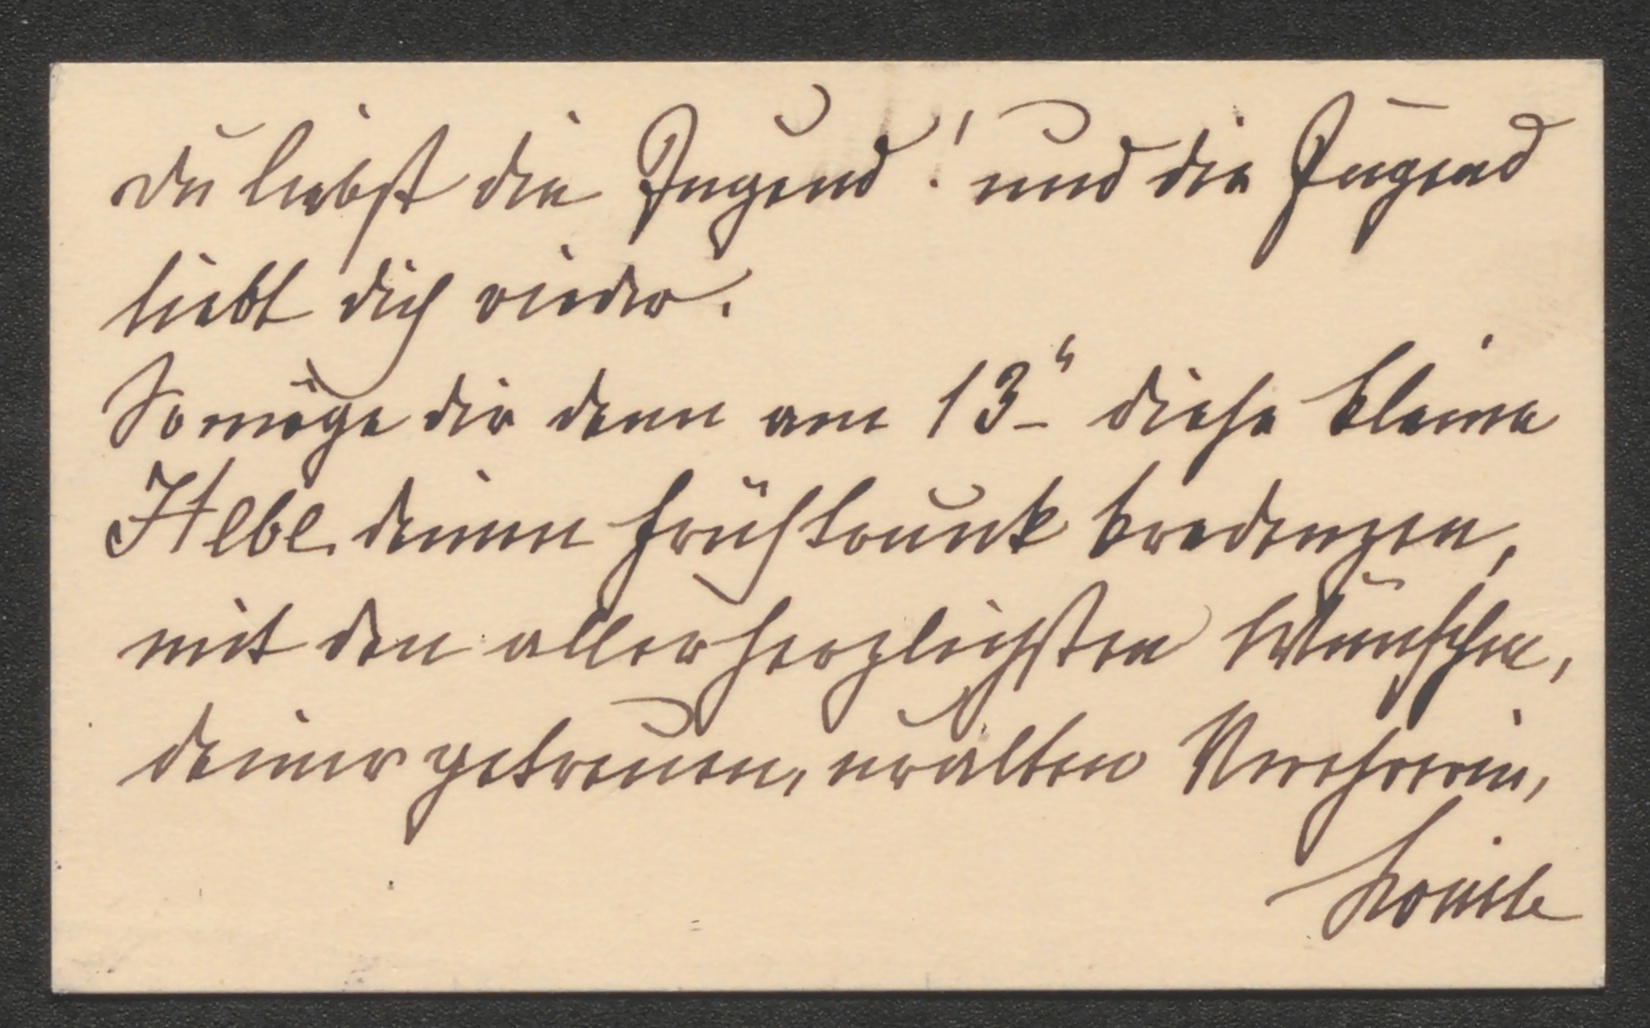 Du liebst die Jugend! und die Jugend
liebt dich wieder.
So möge dir denn am 13 diese kleine
Hebe deinen Frühtrunk kredenzen,
mit den allerherzlichsten Wünschen,
deiner getreuen, uralten Verehrerin,
Louise